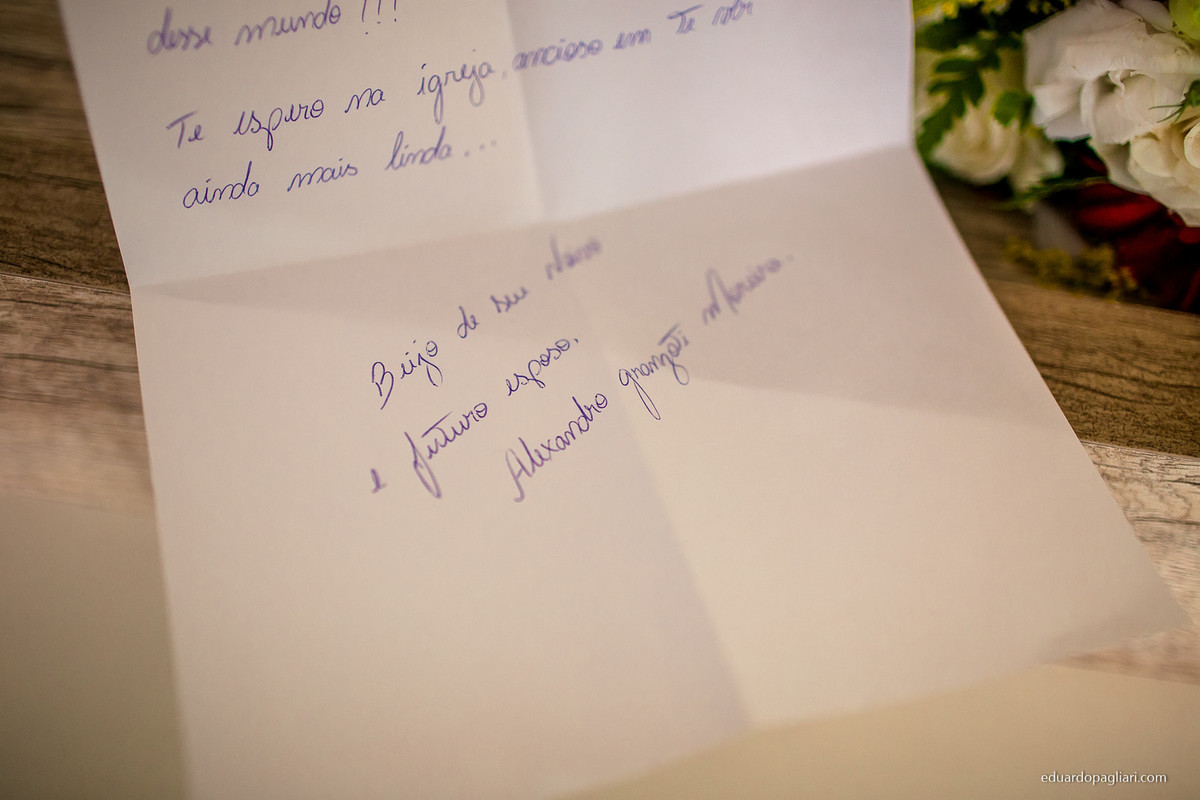 desse mundo !!!
Te espero na igreja, ancioso em Te ver
ainda mais linda...
Beijo de seu Noivo
e futuro esposo.
Alexandro granzoti Moreira.
eduardopagliari.com